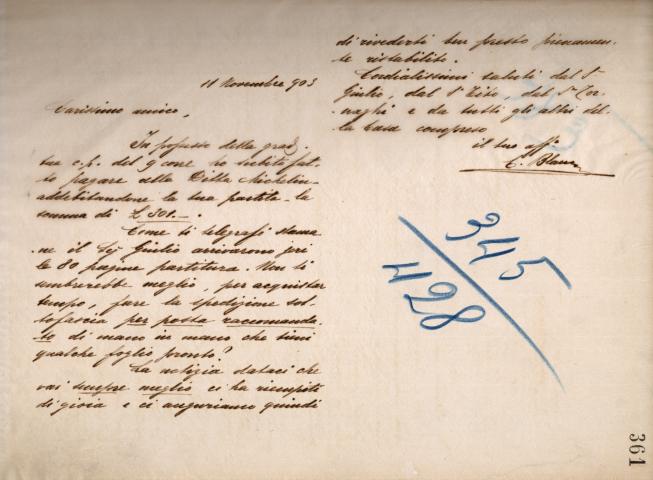 11 Novembre 903
Carissimo amico,
In possesso della grad.
tua c.p. del 9 corr. ho subito fat-
to pagare alla Ditta Michelin
addebitandone la tua partita la
somma di £ 301.—.
Come ti telegrafi stama-
ne il Sig Giulio arrivarono jeri
le 80 pagine partitura. Non ti
sembrerebbe meglio, per acquistar
tempo, fare la spedizione sot-
tofascia per posta raccomanda-
ta di mano in mano che tieni
qualche foglio pronto?
La notizia dataci che
vai sempre meglio ci ha riempiti
di gioia e ci auguriamo quindi
di rivederti ben presto pienamen-
te ristabilito.
Cordialissimi saluti dal Sr
Giulio, dal Sr Tito dal Sr Cor-
naghi e da tutti gli altri del-
la Casa compreso
il tuo aff
C. Blanc
345
428
361